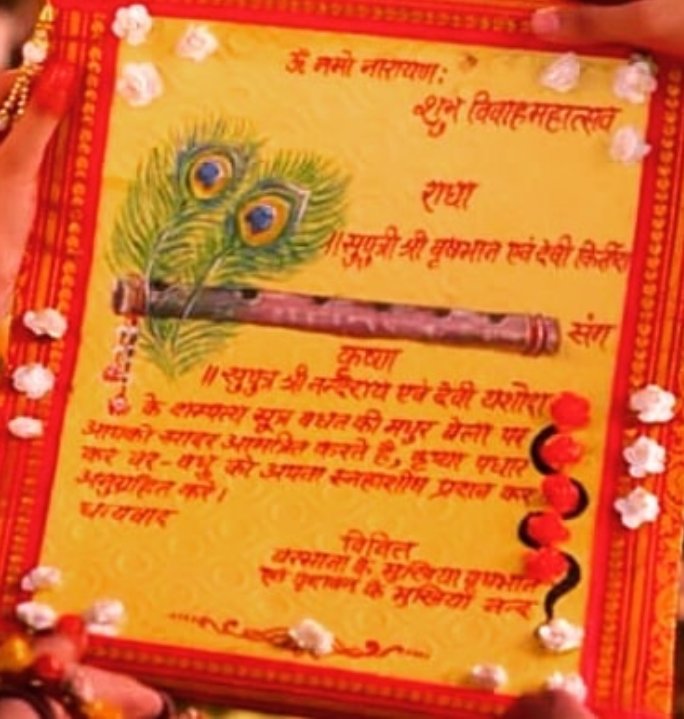 ॐ नमो नारायण:
शुभ विवाहमहोत्सव
राधा
॥सुपुत्री श्री वृषभान एवं देवी कीर्ति
संग
कृष्णा
॥ सुपुत्र श्री नन्दराय एवं देवी यशोदा
के दाम्पत्य सूत्र बंधन की मधुर बेला पर
आपको सादर आमंत्रित करते है, कृप्या पधार
कर वर-वधू को अपना स्नेहाशीष प्रदान कर
अनुग्रहित करे।
धन्यवाद
विनित
बरसाना के मुखिया वृषभान
एवं वृंदावन के मुखिया नन्द